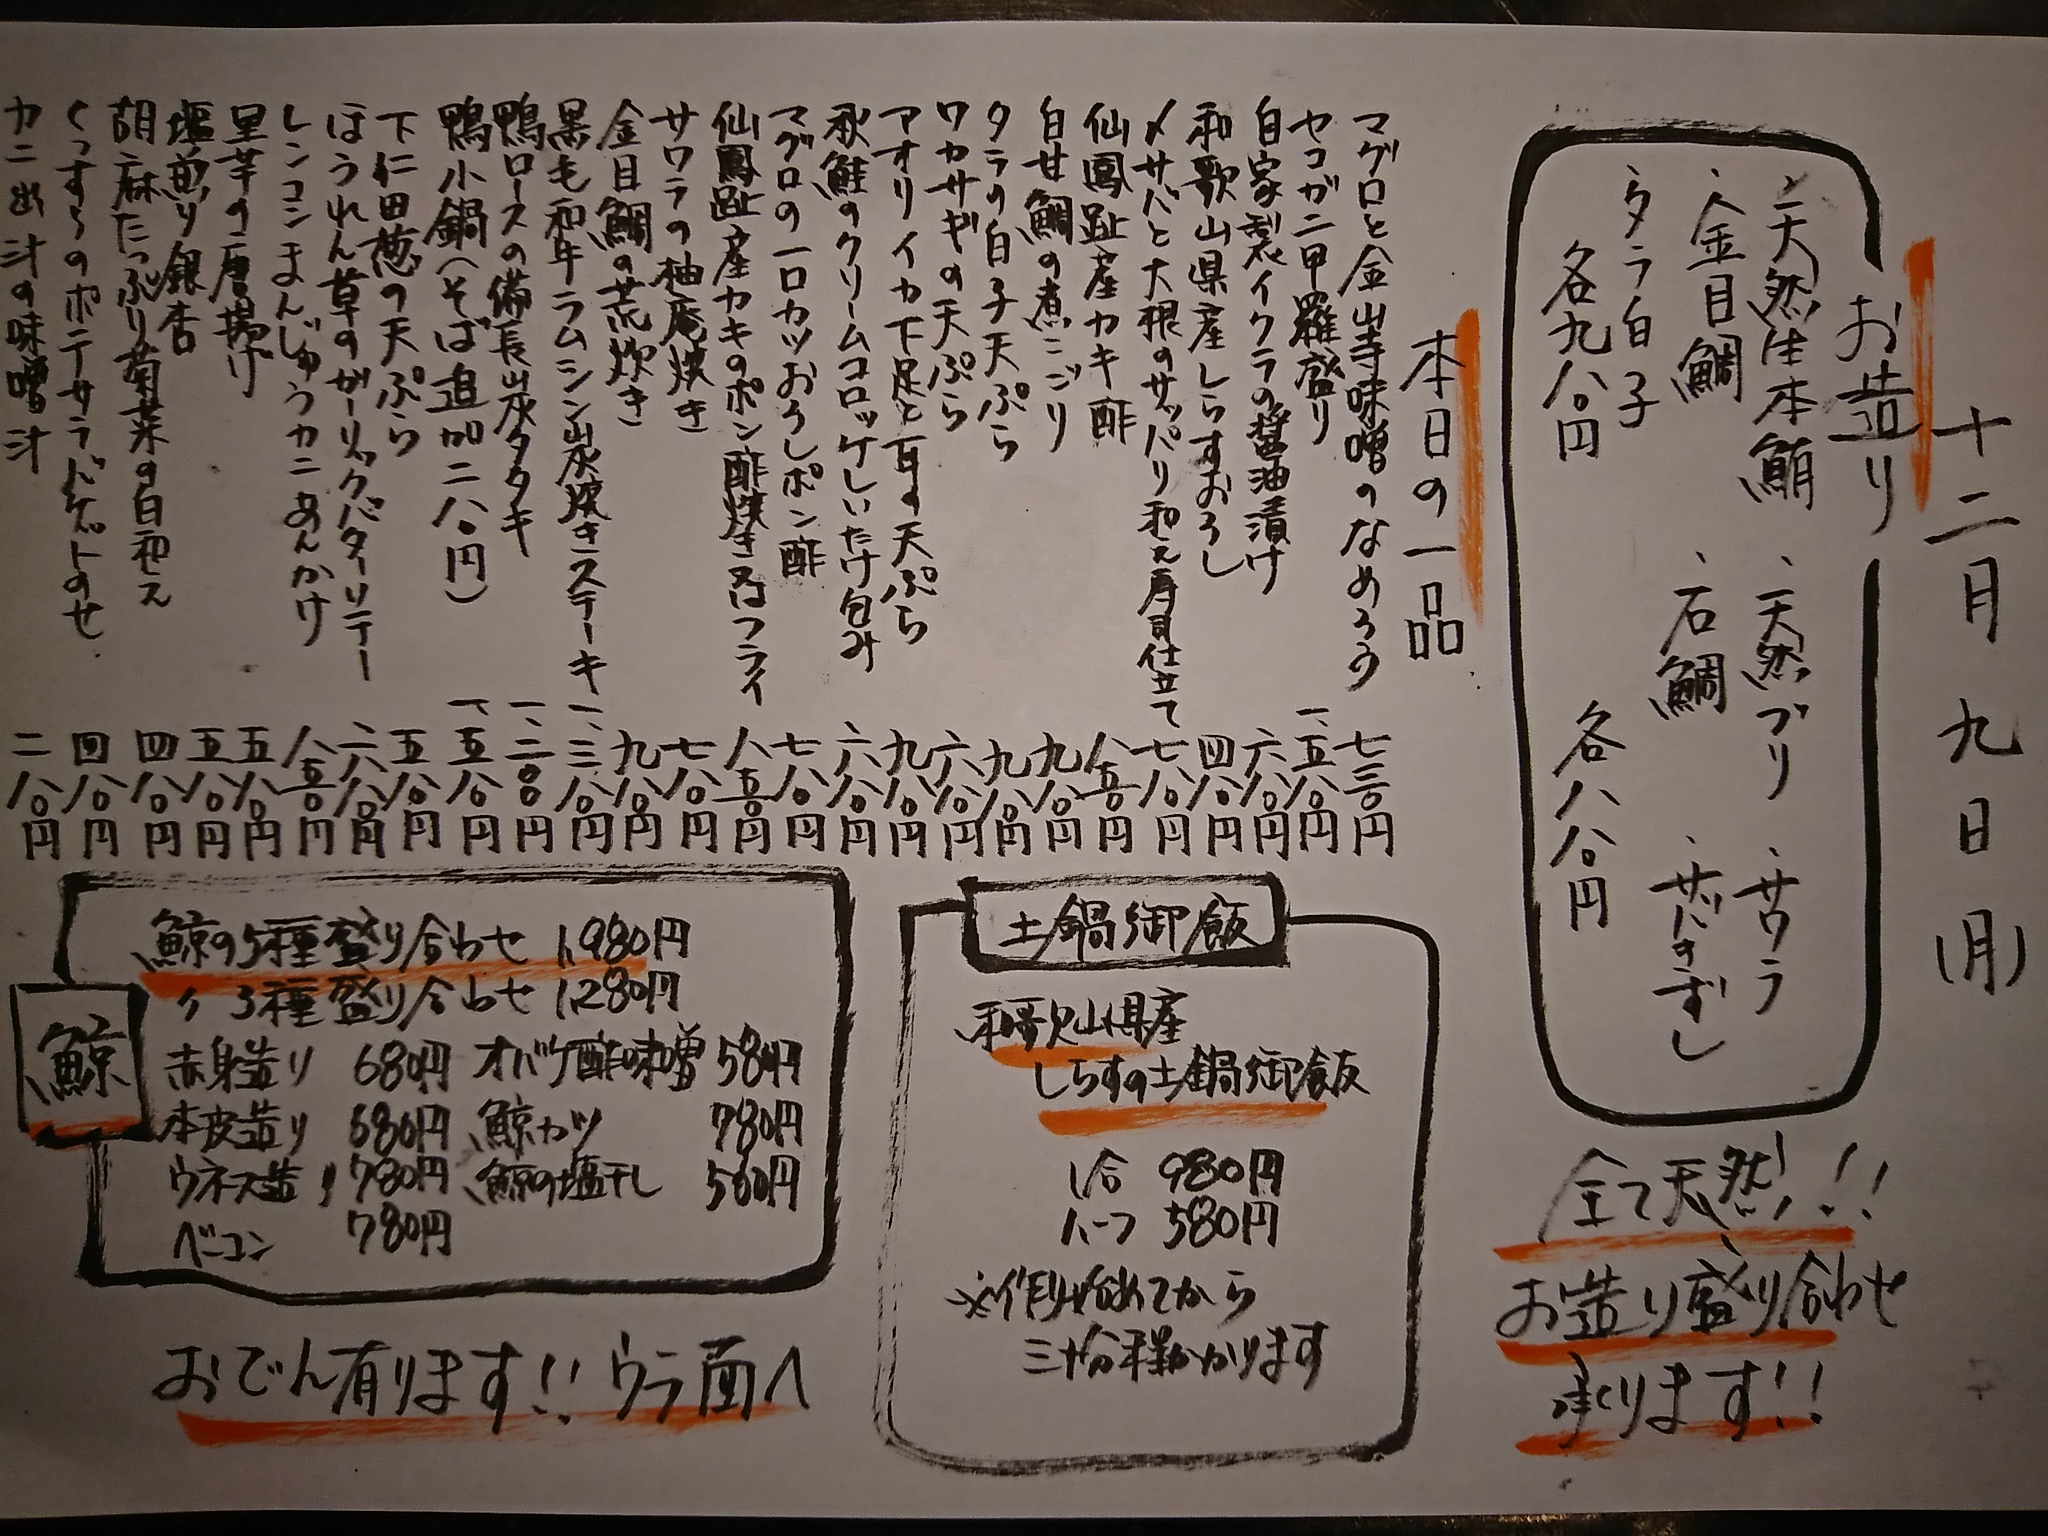 十二月九日(月)
お造り
、天然生本鮪 、天然ブリ 、サワラ
、金目鯛 、石鯛 、サバのきずし
、タラ白子
各九八〇円 各八八〇円
全て天然!!
お造り盛り合わせ
承ります!!
本日の一品
マグロと金山寺味噌のなめろう 七三〇円
セコガニ甲羅盛り 一、五八〇円
自家製イクラの醤油漬け 六八〇円
和歌山県産しらすおろし 四八〇円
〆サバと大根のサッパリ和え寿司仕立て 七八〇円
仙鳳趾産カキ酢 八五〇円
白甘鯛の煮こごり 九八〇円
タラの白子天ぷら 九八〇円
ワカサギの天ぷら 六八〇円
アオリイカ下足と耳の天ぷら 九八〇円
秋鮭のクリームコロッケしいたけ包み 六八〇円
マグロの一口カツおろしポン酢 七八〇円
仙鳳趾産カキのポン酢焼き又はフライ 八五〇円
サワラの柚庵焼き 七八〇円
金目鯛の荒炊き 九八〇円
黒毛和牛ラムシン炭焼きステーキ 一、三八〇円
鴨ロースの備長炭タタキ 一、二〇〇円
鴨小鍋(そば追加二八〇円) 一、五八〇円
下仁田葱の天ぷら 五八〇円
ほうれん草のガーリックバターソテー 六八〇円
レンコンまんじゅうカニあんかけ 八五〇円
里芋の唐揚げ 五八〇円
塩煎り銀杏 五八〇円
胡麻たっぷり菊菜の白和え 四八〇円
くっすらのポテサラバゲットのせ 四八〇円
カニ出汁の味噌汁 二八〇円
土鍋御飯
和歌山県産
しらすの土鍋御飯
1合 980円
ハーフ 580円
※作り始めてから
三十分程かかります
鯨
鯨の5種盛り合わせ 1,980円
〃 3種盛り合わせ 1,280円
赤身造り 680円 オバケ酢味噌 580円
本皮造り 680円 鯨カツ 780円
ウネス造り 780円 鯨の塩干し 560円
ベーコン 780円
おでん有ります!! ウラ面へ